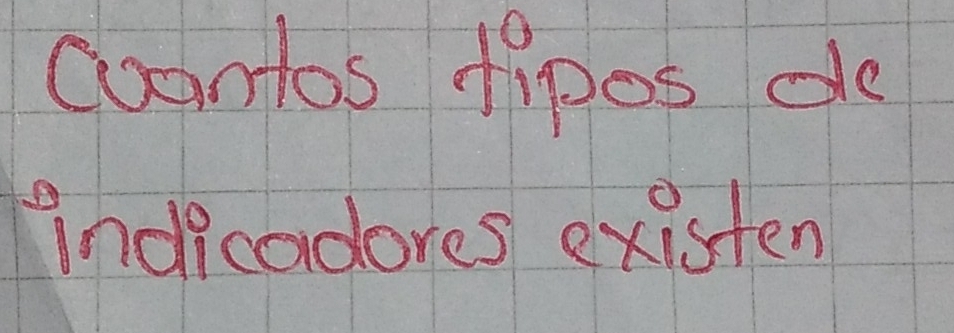 Cuantos tipos de
indicadores existen